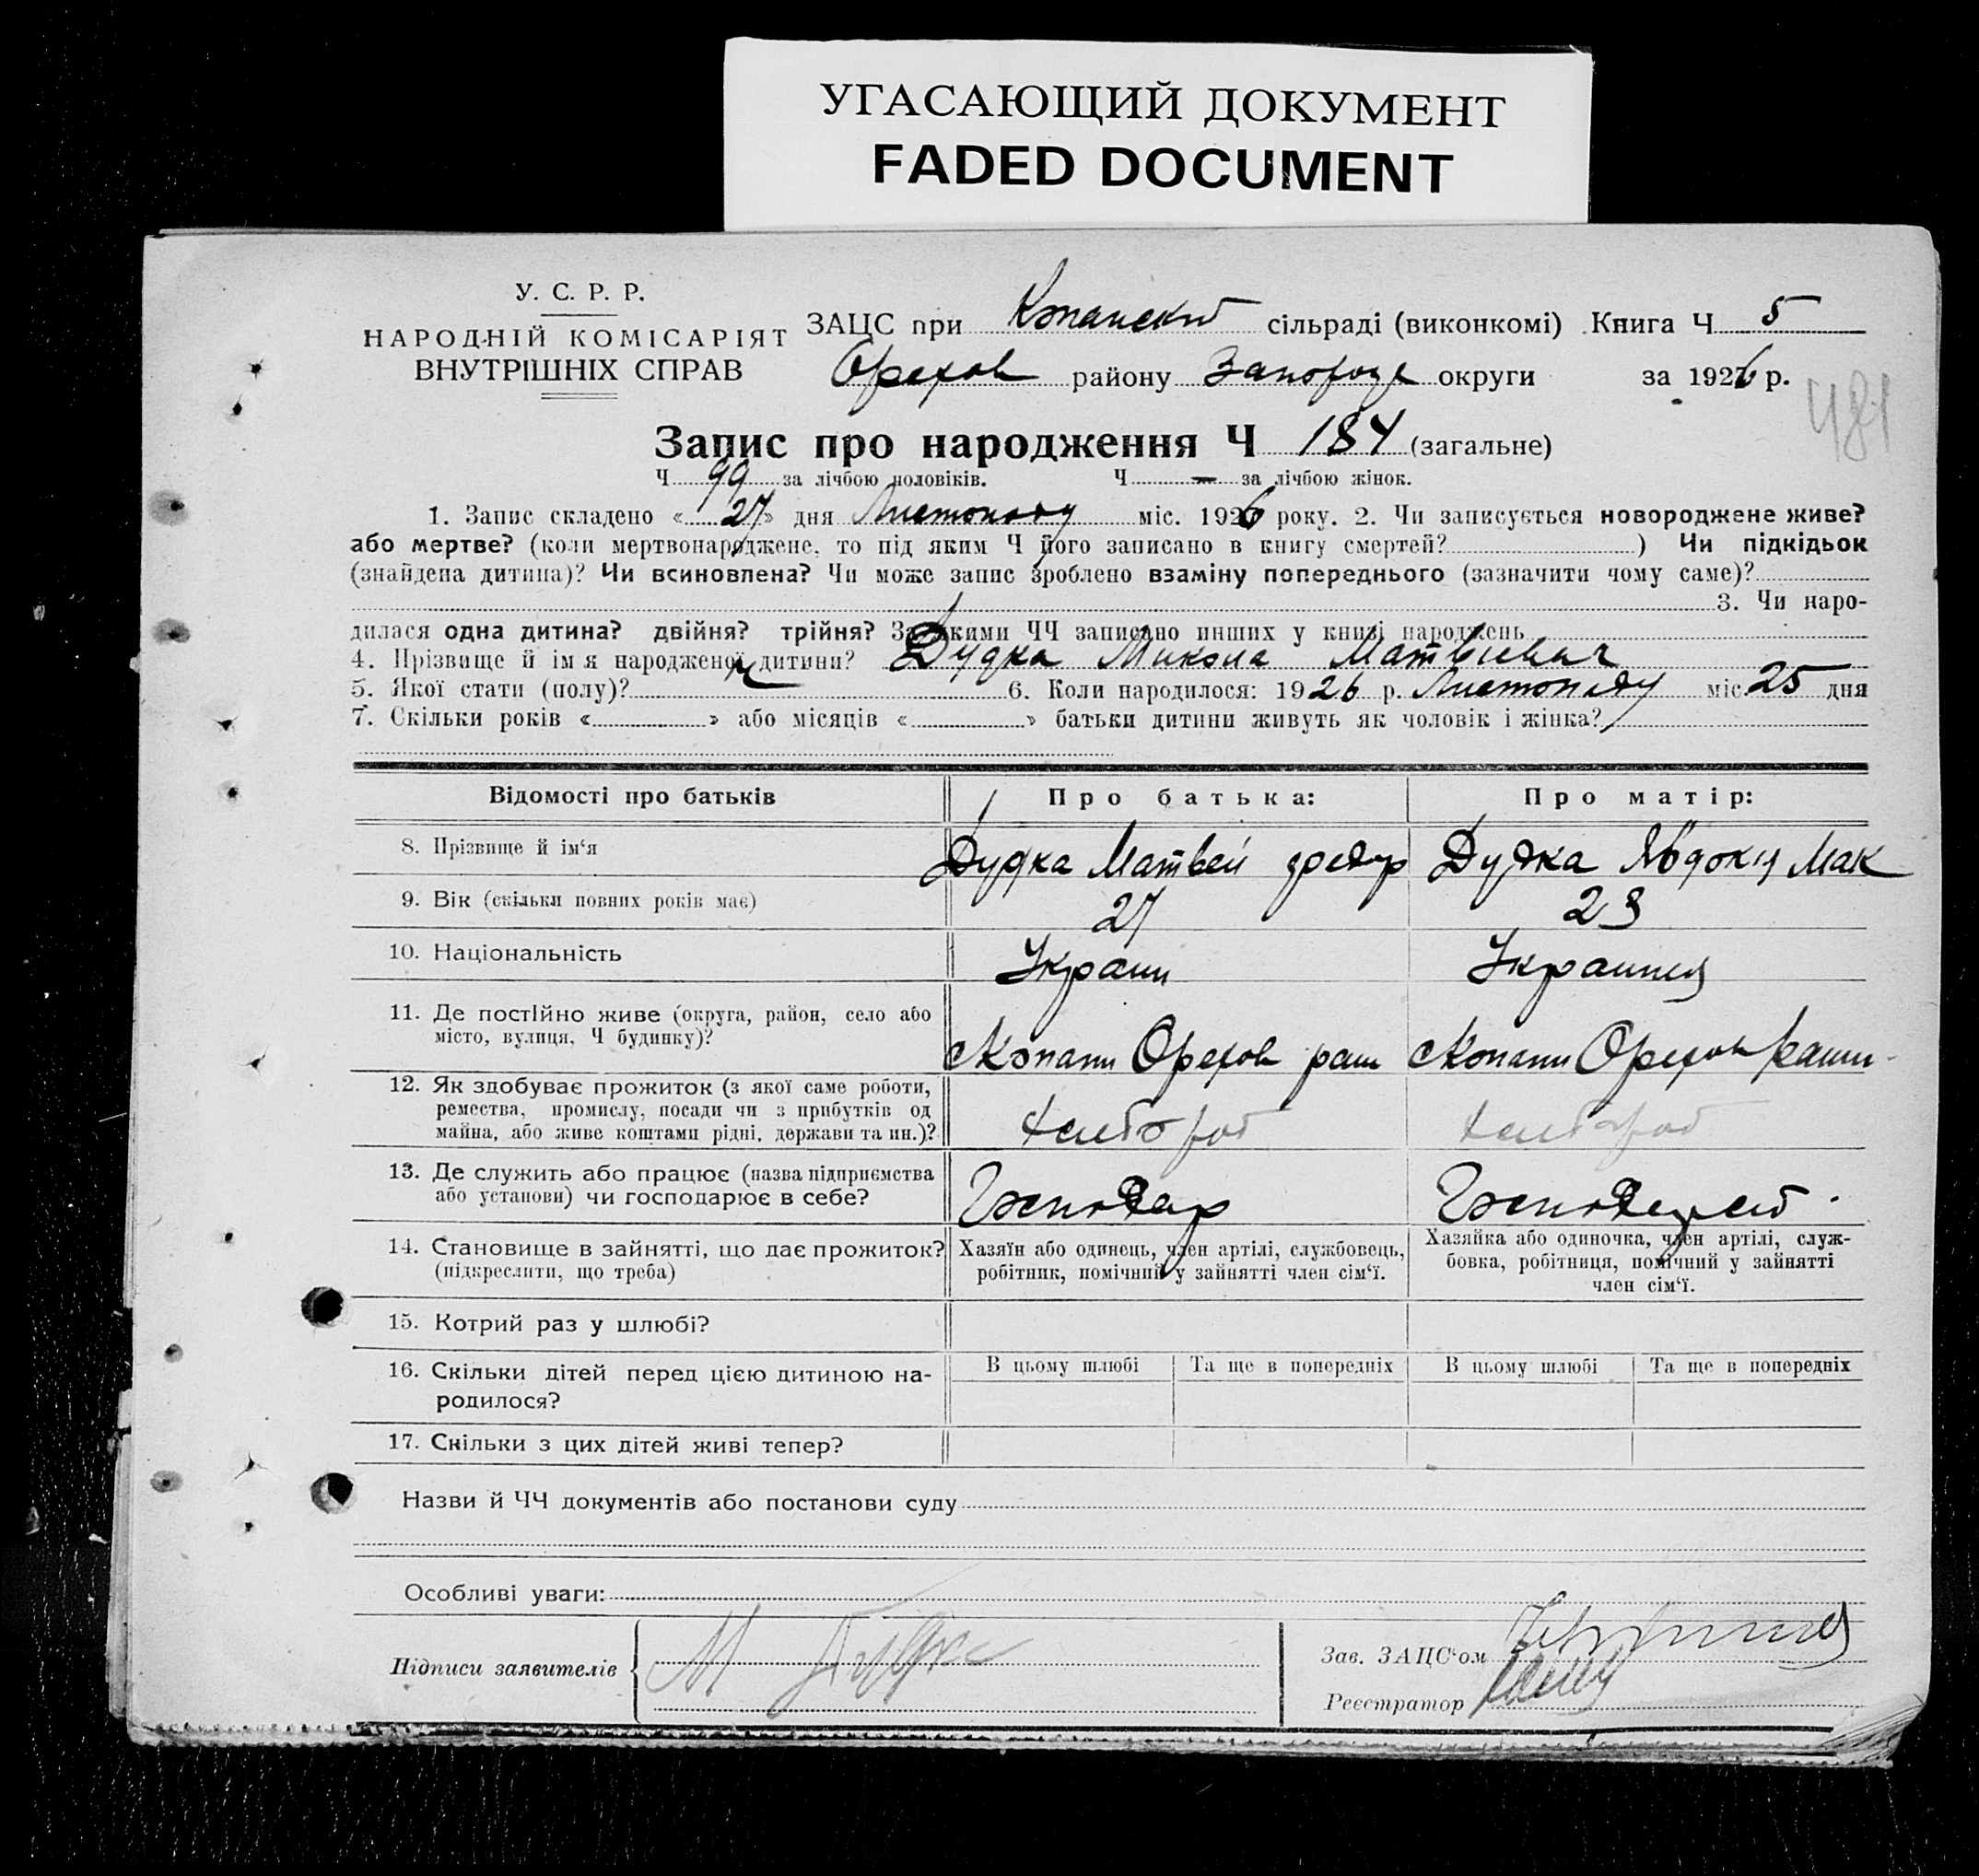 УГАСАЮЩИЙ ДОКУМЕНТ
FADED DOCUMENT
У. С. Р. Р.
НАРОДНІЙ КОМІСАРІЯТ
ВНУТРІШНІХ СПРАВ
ЗАЦС при Копанский сільраді (виконкомі) Книга Ч 5
Орехов району Запорозь округи за 1926 р.
481
Запис про народження Ч 184 (загальне)
Ч 99 за лічбою чоловіків. Ч — за лічбою жінок.
1. Запис складено « 27 » дня Листопаду міс. 1926 року. 2. Чи записується новороджене живе?
або мертве? (коли мертвонароджене, то під яким Ч його записано в книгу смертей? ) Чи підкідьок
(знайдена дитина)? Чи всиновлена? Чи може запис зроблено взаміну попереднього (зазначити чому саме)?
3. Чи наро-
дилася одна дитина? двійня? трійня? За якими ЧЧ записано инших у книзі народжень
4. Прізвище й ім'я народженої дитини? Дудка Микола Матвієвич
5. Якої стати (полу)? ч 6. Коли народилося: 1926 р. Листопаду міс. 25 дня
7. Скільки років « » або місяців « » батьки дитини живуть як чоловік і жінка?
Відомості про батьків Про батька: Про матір:
8. Прізвище й ім'я Дудка Матвей Дудка Явдокія Мак
9. Вік (скільки повних років має) 27 23
10. Національність Украин Украинця
11. Де постійно живе (округа, район, село або
місто, вулиця, Ч будинку)? сКопани Орехов раш сКопани Орехов
12. Як здобуває прожиток (з якої саме роботи,
ремества, промислу, посади чи з прибутків од
майна, або живе коштами рідні, держави та ин.)? хлебороб хлебороб
13. Де служить або працює (назва підприємства
або установи) чи господарює в себе? Господар
14. Становище в зайнятті, що дає прожиток?
(підкреслити, що треба)
Хазяїн або одинець, член артілі, службовець,
робітник, помічний у зайнятті член сім'ї.
Хазяйка або одиночка, член артілі, служ-
бовка, робітниця, помічний у зайнятті
член сім'ї.
15. Котрий раз у шлюбі?
16. Скільки дітей перед цією дитиною на-
родилося?
В цьому шлюбі Та ще в попередніх В цьому шлюбі Та ще в попередніх
17. Скільки з цих дітей живі тепер?
Назви й ЧЧ документів або постанови суду
Особливі уваги:
Підписи заявителів М Дудка
Зав. ЗАЦС'ом
Реєстратор